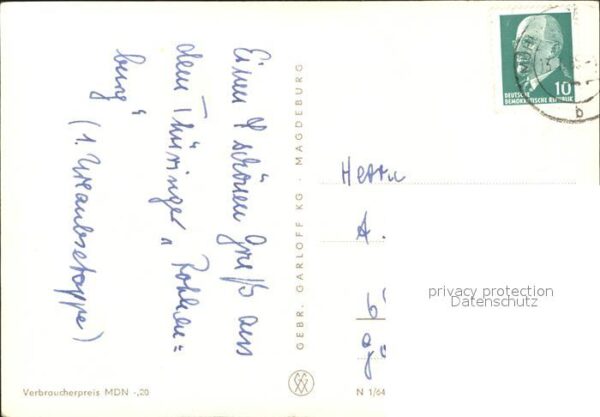 Einen schönen Gruß aus
dem Thüringer "Kohlen=
burg"
(1. Urlaubsetappe)
GEBR. GARLOFF KG · MAGDEBURG
DEUTSCHE
DEMOKRATISCHE REPUBLIK
10
MÜHL
b
Herrn
A.
privacy protection
Datenschutz
Verbraucherpreis MDN -,20
N 1/64